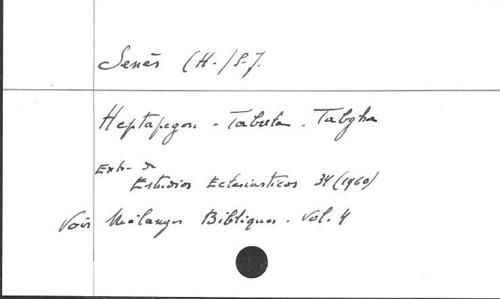 Senès (H./S.J.
Heptapegon - Tabula - Tabgha
Extr. d
Estudios Eclesiasticos 34 (1960)
Voir Mélanges Bibliques. Vol. 4